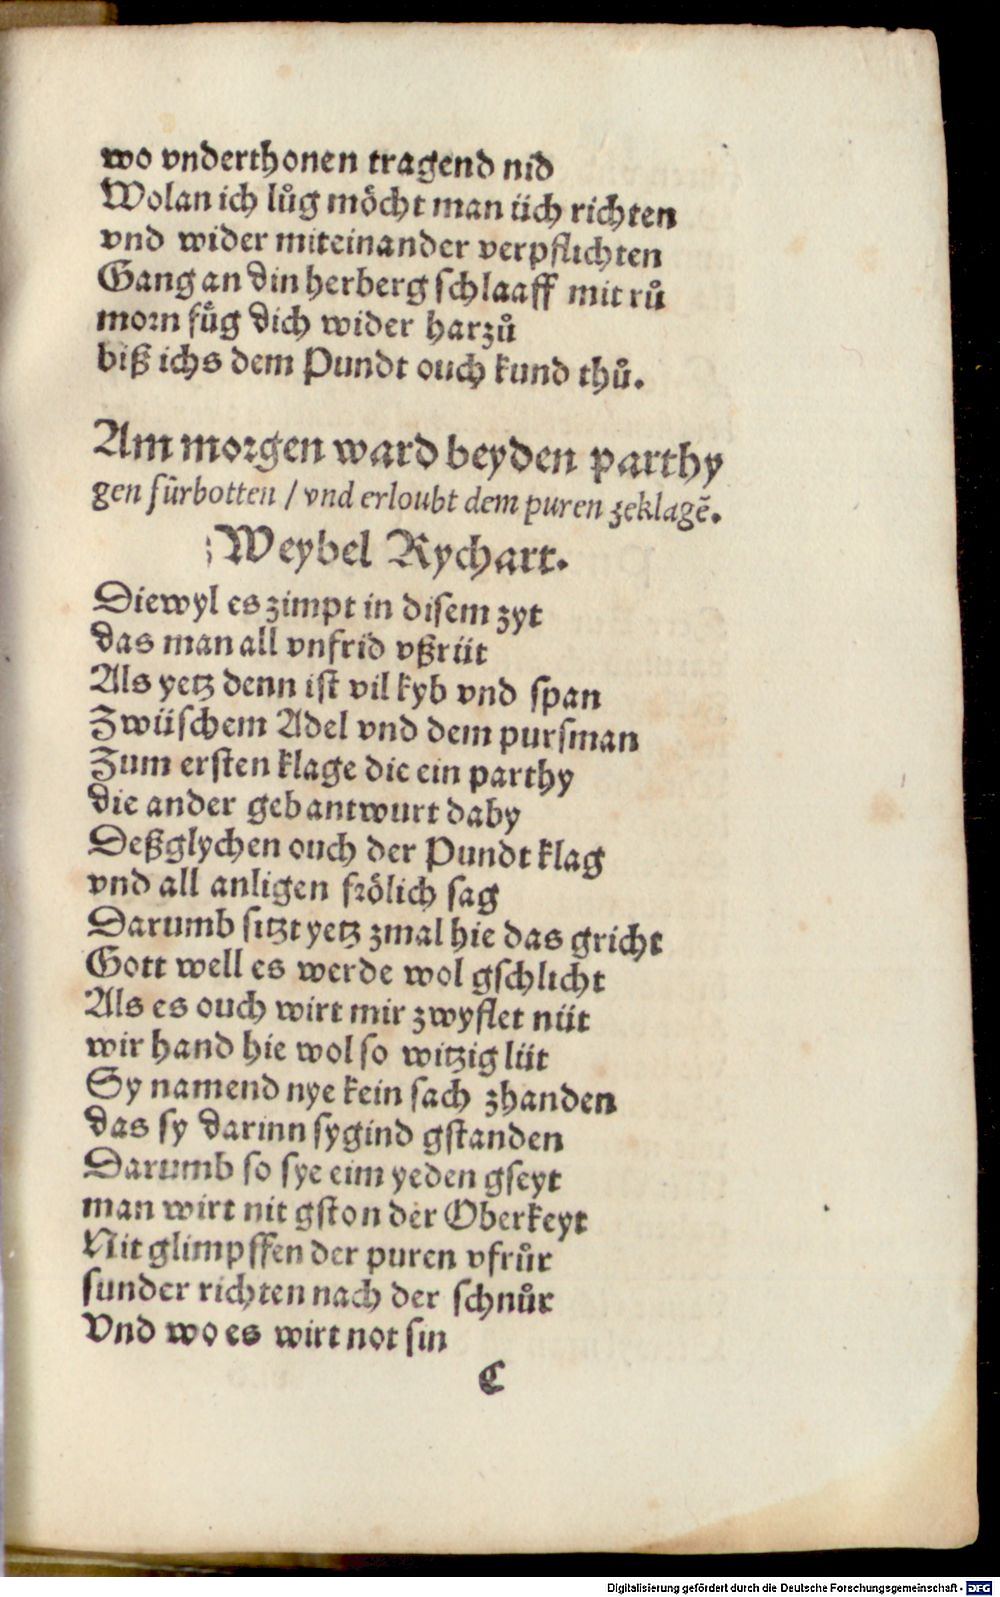 wo vnderthonen tragend nid
Wolan ich lůg möcht man üch richten
vnd wider miteinander verpflichten
Gang an din herberg schlaaff mit rů
morn fůg dich wider harzů
biß ichs dem Pundt ouch kund thů.
Am morgen ward beyden parthy
gen fürbotten / vnd erloubt dem puren zeklagē.
Weybel Rychart.
Diewyl es zimpt in disem zyt
das man all vnfrid vßrüt
Als yetz denn ist vil kyb vnd span
Zwüschem Adel vnd dem pursman
Zum ersten klage die ein parthy
die ander geb antwurt daby
Deßglychen ouch der Pundt klag
vnd all anligen frölich sag
Darumb sitzt yetz zmal hie das gricht
Gott well es werde wol gschlicht
Als es ouch wirt mir zwyflet nüt
wir hand hie wol so witzig lüt
Sy namend nye kein sach zhanden
das sy darinn sygind gstanden
Darumb so sye eim yeden gseyt
man wirt nit gston der Oberkeyt
Nit glimpffen der puren vfrůr
sunder richten nach der schnůr
Vnd wo es wirt not sin
C
Digitalisierung gefördert durch die Deutsche Forschungsgemeinschaft - DFG